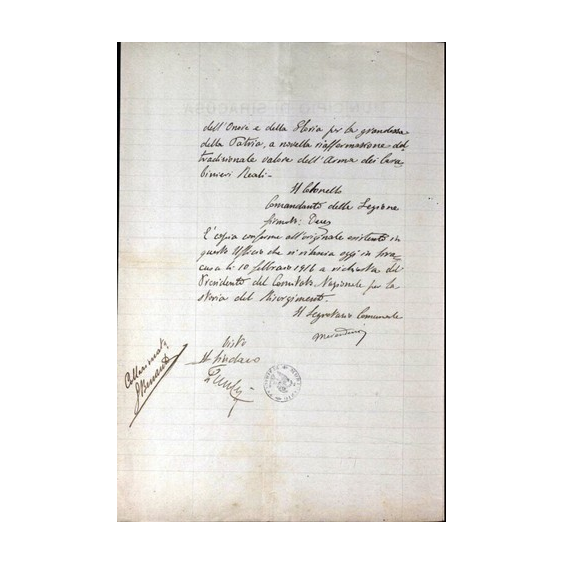 dell'Onore e della Gloria per la grandezza
della Patria, a novella riaffermazione del
tradizionale valore dell'Arma dei Cara
binieri Reali-
Il Colonello
Comandante della Legione
firmato:
È copia conforme all'originale esistente in
questo Ufficio che si rilascia oggi in Sira
cusa li 10 febbraio 1916 a richiesta del
Presidente del Comitato Nazionale per la
storia del Risorgimento.
Il Segretario Comunale
Visto
Il Sindaco